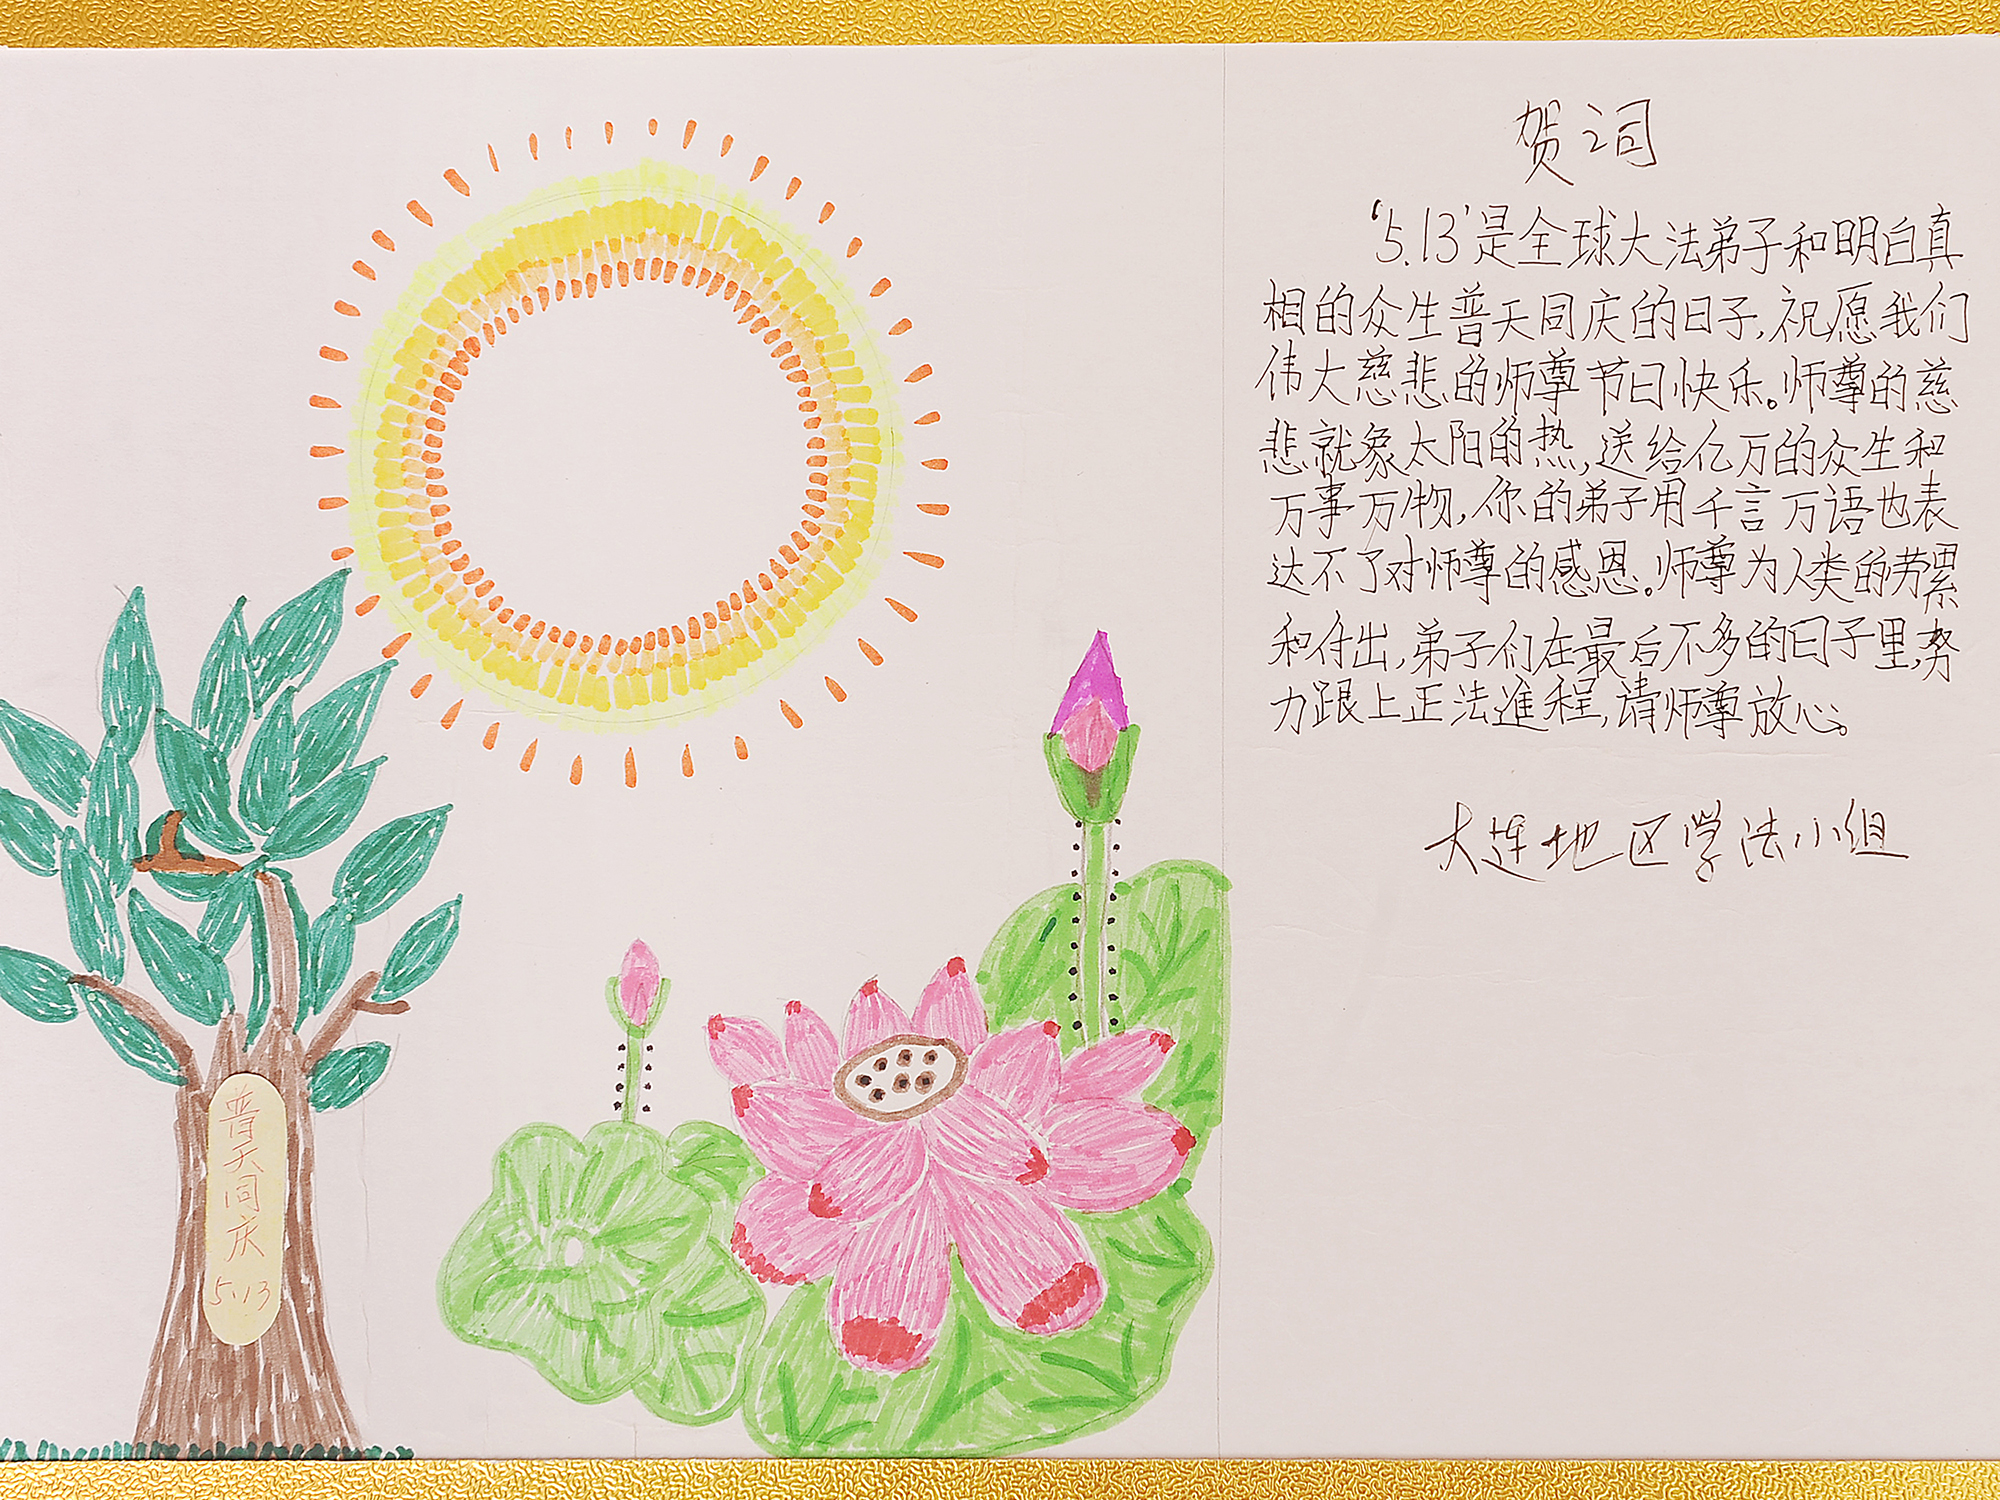 贺词
‘5.13’是全球大法弟子和明白真
相的众生普天同庆的日子,祝愿我们
伟大慈悲的师尊节日快乐。师尊的慈
悲就象太阳的热,送给亿万的众生和
万事万物,你的弟子用千言万语也表
达不了对师尊的感恩。师尊为人类的劳累
和付出,弟子们在最后不多的日子里,努
力跟上正法進程,请师尊放心。
大连地区学法小组
普天同庆
5.13